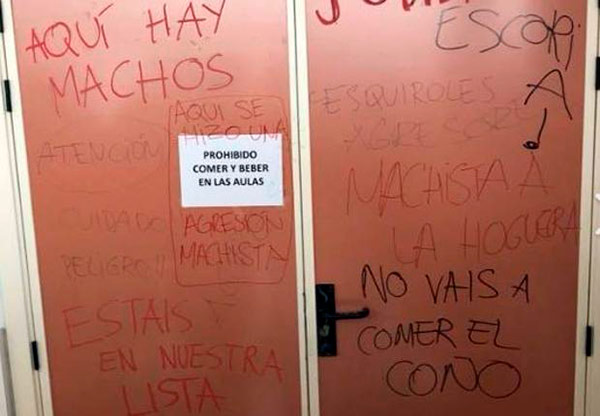 AQUÍ HAY
MACHOS
AQUI SE
HIZO UNA
ATENCIÓN
PROHIBIDO
COMER Y BEBER
EN LAS AULAS
CUIDADO
PELIGRO!!
AGRESIÓN
MACHISTA
ESTAIS
EN NUESTRA
LISTA
ESCORI
A!
ESQUIROLES
MACHISTA A
LA HOGUERA
NO VAIS A
COMER EL
COÑO